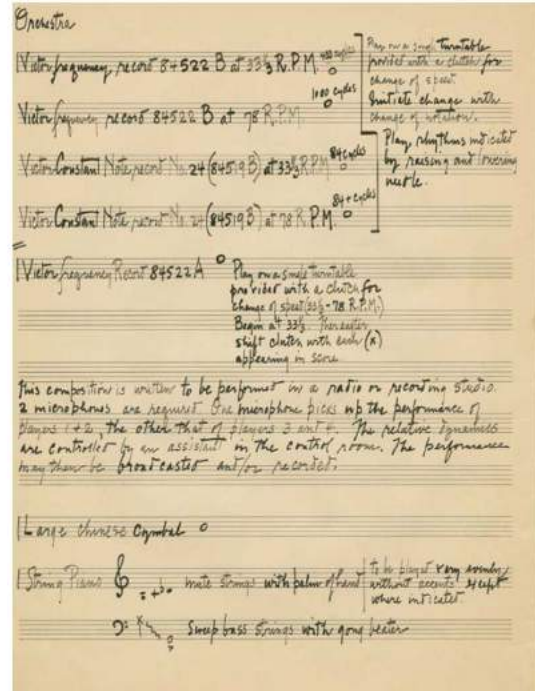 Orchestra
Victor frequency record 84522 B at 33⅓ R.P.M.
1000 cycles
Victor frequency record 84522 B at 78 R.P.M.
Play on a single turntable
provided with a clutch for
change of speed.
Initiate change with
change of notation.
84 cycles
Victor Constant Note record No. 24 (84519 B) at 33⅓ R.P.M.
Victor Constant Note record No. 24 (84519 B) at 78 R.P.M.
Play rhythms indicated
by raising and lowering
needle.
Victor frequency Record 84522 A
Play on a single turntable
provided with a clutch for
change of speed (33⅓ - 78 R.P.M.)
Begin at 33⅓. Thereafter
shift clutch with each (x)
appearing in score
This composition is written to be performed in a radio or recording studio.
2 microphones are required. One microphone picks up the performance of
players 1 + 2, the other that of players 3 and 4. The relative dynamics
are controlled by an assistant in the control room. The performance
may then be broadcasted and/or recorded.
Large Chinese Cymbal
String Piano mute strings with palm of hand
to be played very evenly
without accents except
where indicated.
Sweep bass strings with gong beater